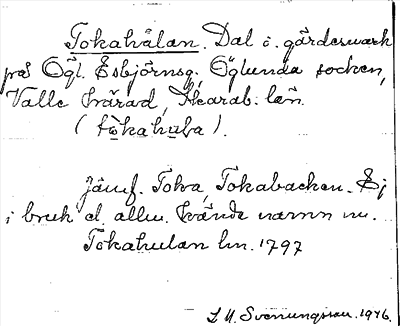 Tokahålan. Dal i gärdesmark
på Ögl. Esbjörnsg., Öglunda socken,
Valle härad, Skarab. län.
(tòkahuḷa).
Jämf. Toka, Tokabacken. Ej
i bruk el. allm. kända namn nu.
Tokahulan lm. 1797
L. M. Svenungsson. 1946.